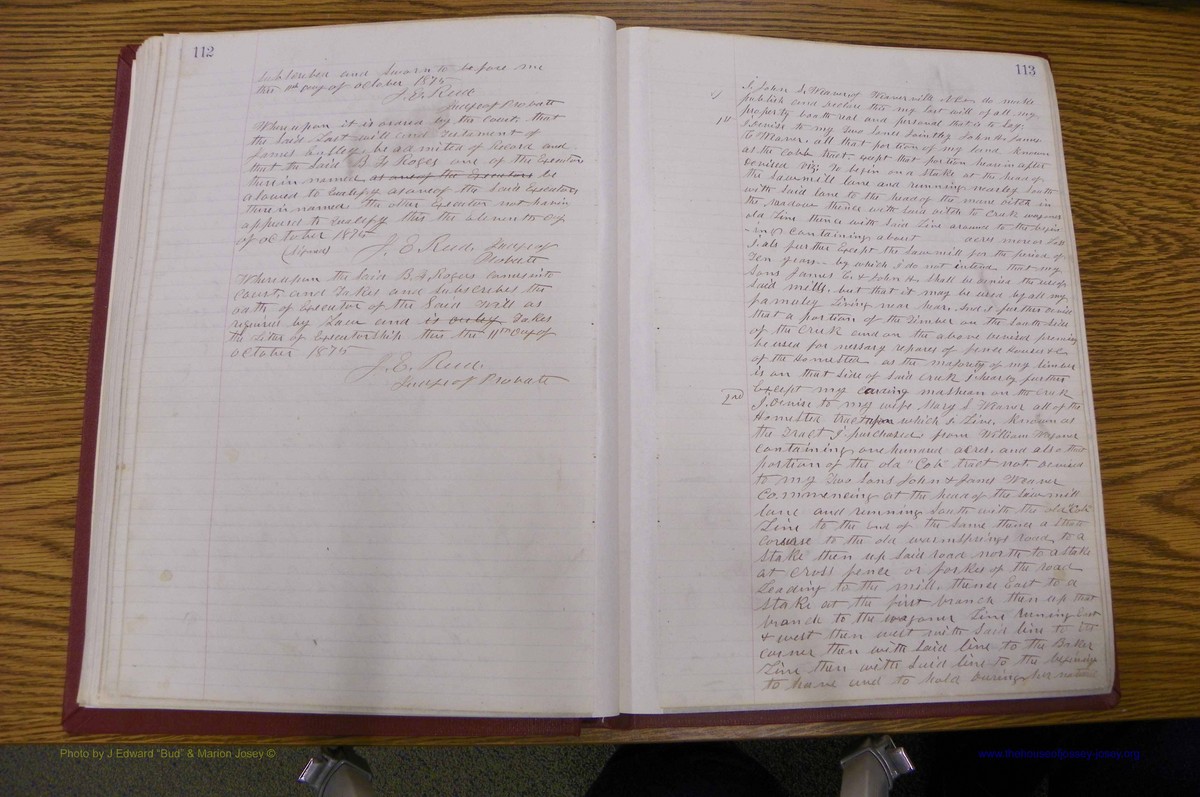 112
Subscribed and Sworn to before me
this 11th day of October 1875
J. E. Reed
Judge of Probate
Whereupon it is ordered by the Court that
the Said Last will and Testament of
James be admited of Record and
that the Said B. F. Rogers one of the Executors
therein named as one of the Executors be
alowed to qualify as one of the Said Executors
there is named the other Executor not havin
appeared to qualify this the eleventh of
of October 1875
(Signed) J. E. Reed, Judge of
Probate
Whereupon the Said B. F. Rogers comes into
Court and Takes and Subscribes the
oath of Executor of the Said Will as
required by Law and is duly Takes
the Letter of Executorship this the 11th day of
October 1875
J. E. Reed.
Judge of Probate
113
I, John S. Weaver of Weaverville N.C. do make
publish and declare this my last will of all my
property boath real and personal that is to Say:
1st I Devise to my Two Sons Jointly, John & James
Weaver, all that portion of my land known
as the Cobb tract, except that portion herein after
devised viz; To begin on a Stake at the head of
the Sawmill lane and running South
with Said lane to the head of the main ditch in
the meadow thence with Said ditch to Creek
old Line thence with Said Line around to the begin
ing Containing about acres more or Less
I also further Except the Saw mill for the period of
Ten years by which I do not intend that my
Sons James & John shall be denied the use of
Said mills, but that it may be used by all my
famaley living near hear. And I further
that a portion of the Timber on the South Side
of the Creek and on the above devised
be used for nessary repares of fence Houses &c
of the Homested as the majority of my timber
is on that Side of Said Creek I hearby further
Except my mashean on the creek
2nd I. Devise to my wife Mary S. Weaver all of the
Homested tract upon which I Live, Known as
the Tract I purchased from William Weaver
Containing one hundred acres, and also that
portion of the old "Cob" tract not devised
to my Two Sons John & James Weaver
Commencing at the head of the Saw mill
lane and running South with the old "Cob"
Line to the end of the Same thence a Strate
Course to the old warmsprings road, to a
Stake then up Said road north to a Stake
at Cross fence or forkes of the road
Leading to the mill, thence East to a
Stake at the first branch then up that
branch to the wagoner Line runing East
& west then west with Said line to its
corner then with Said line to the Baker
Line then with Said line to the begining
to have and to hold during her natural
Photo by J Edward "Bud" & Marion Josey ©
www.thehouseofjoseby-josey.org